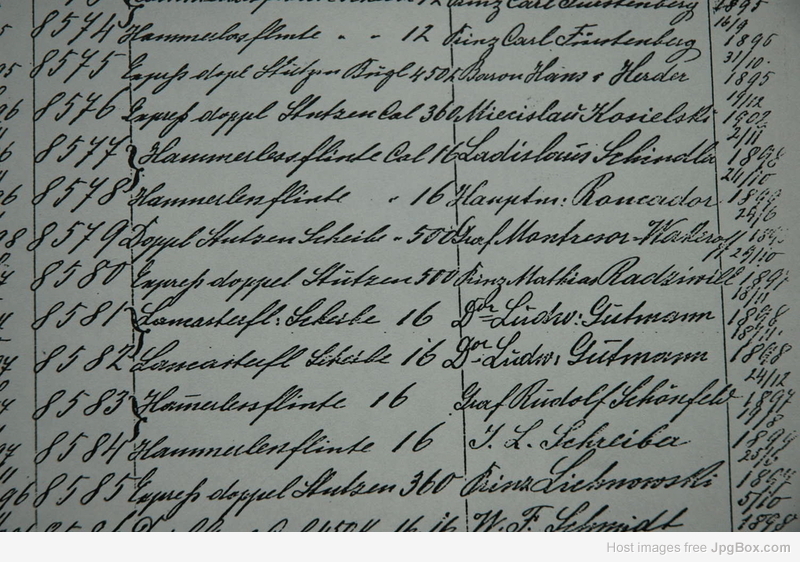 12 Prinz Carl Fürstenberg 1895
16/9
8574 Hammerlosflinte " " 12 Prinz Carl Fürstenberg 1896
31/10
8575 Express dopl Stutzen Kugl 450 Baron Hans v Herder 1895
14/12
8576 Express doppl Stutzen Cal 360 Miecislaŭ Kosielski 1902
2/11
8577 Hammerlessflinte Cal 16 Ladislaus Schindla 1898
24/10
8578 Hammerlenflinte " 16 Hauptm: Roncador 1899
25/6
8579 Doppel Stutzen Scheibe " 500 Graf Montresor- 189
25/10
8580 Express doppel Stutzen 500 Prinz Mathias Radziwill 1897
18/11
8581 Lancasterfl: Scheibe 16 Dor Ludw: Gutmann 1898
18/11
8582 Lancasterfl Scheibe 16 Dor Ludw: Gutmann 1898
24/12
8583 Hamerlenflinte 16 Graf Rudolf Schönfeld 1897
8584 Hammerlenflinte 16 J. L. Schreiber 1899
8585 Express doppel Stutzen 360 Prinz Lichnowski
5/10
16 16 W. F. Schmidt 1898
Host images free JpgBox.com